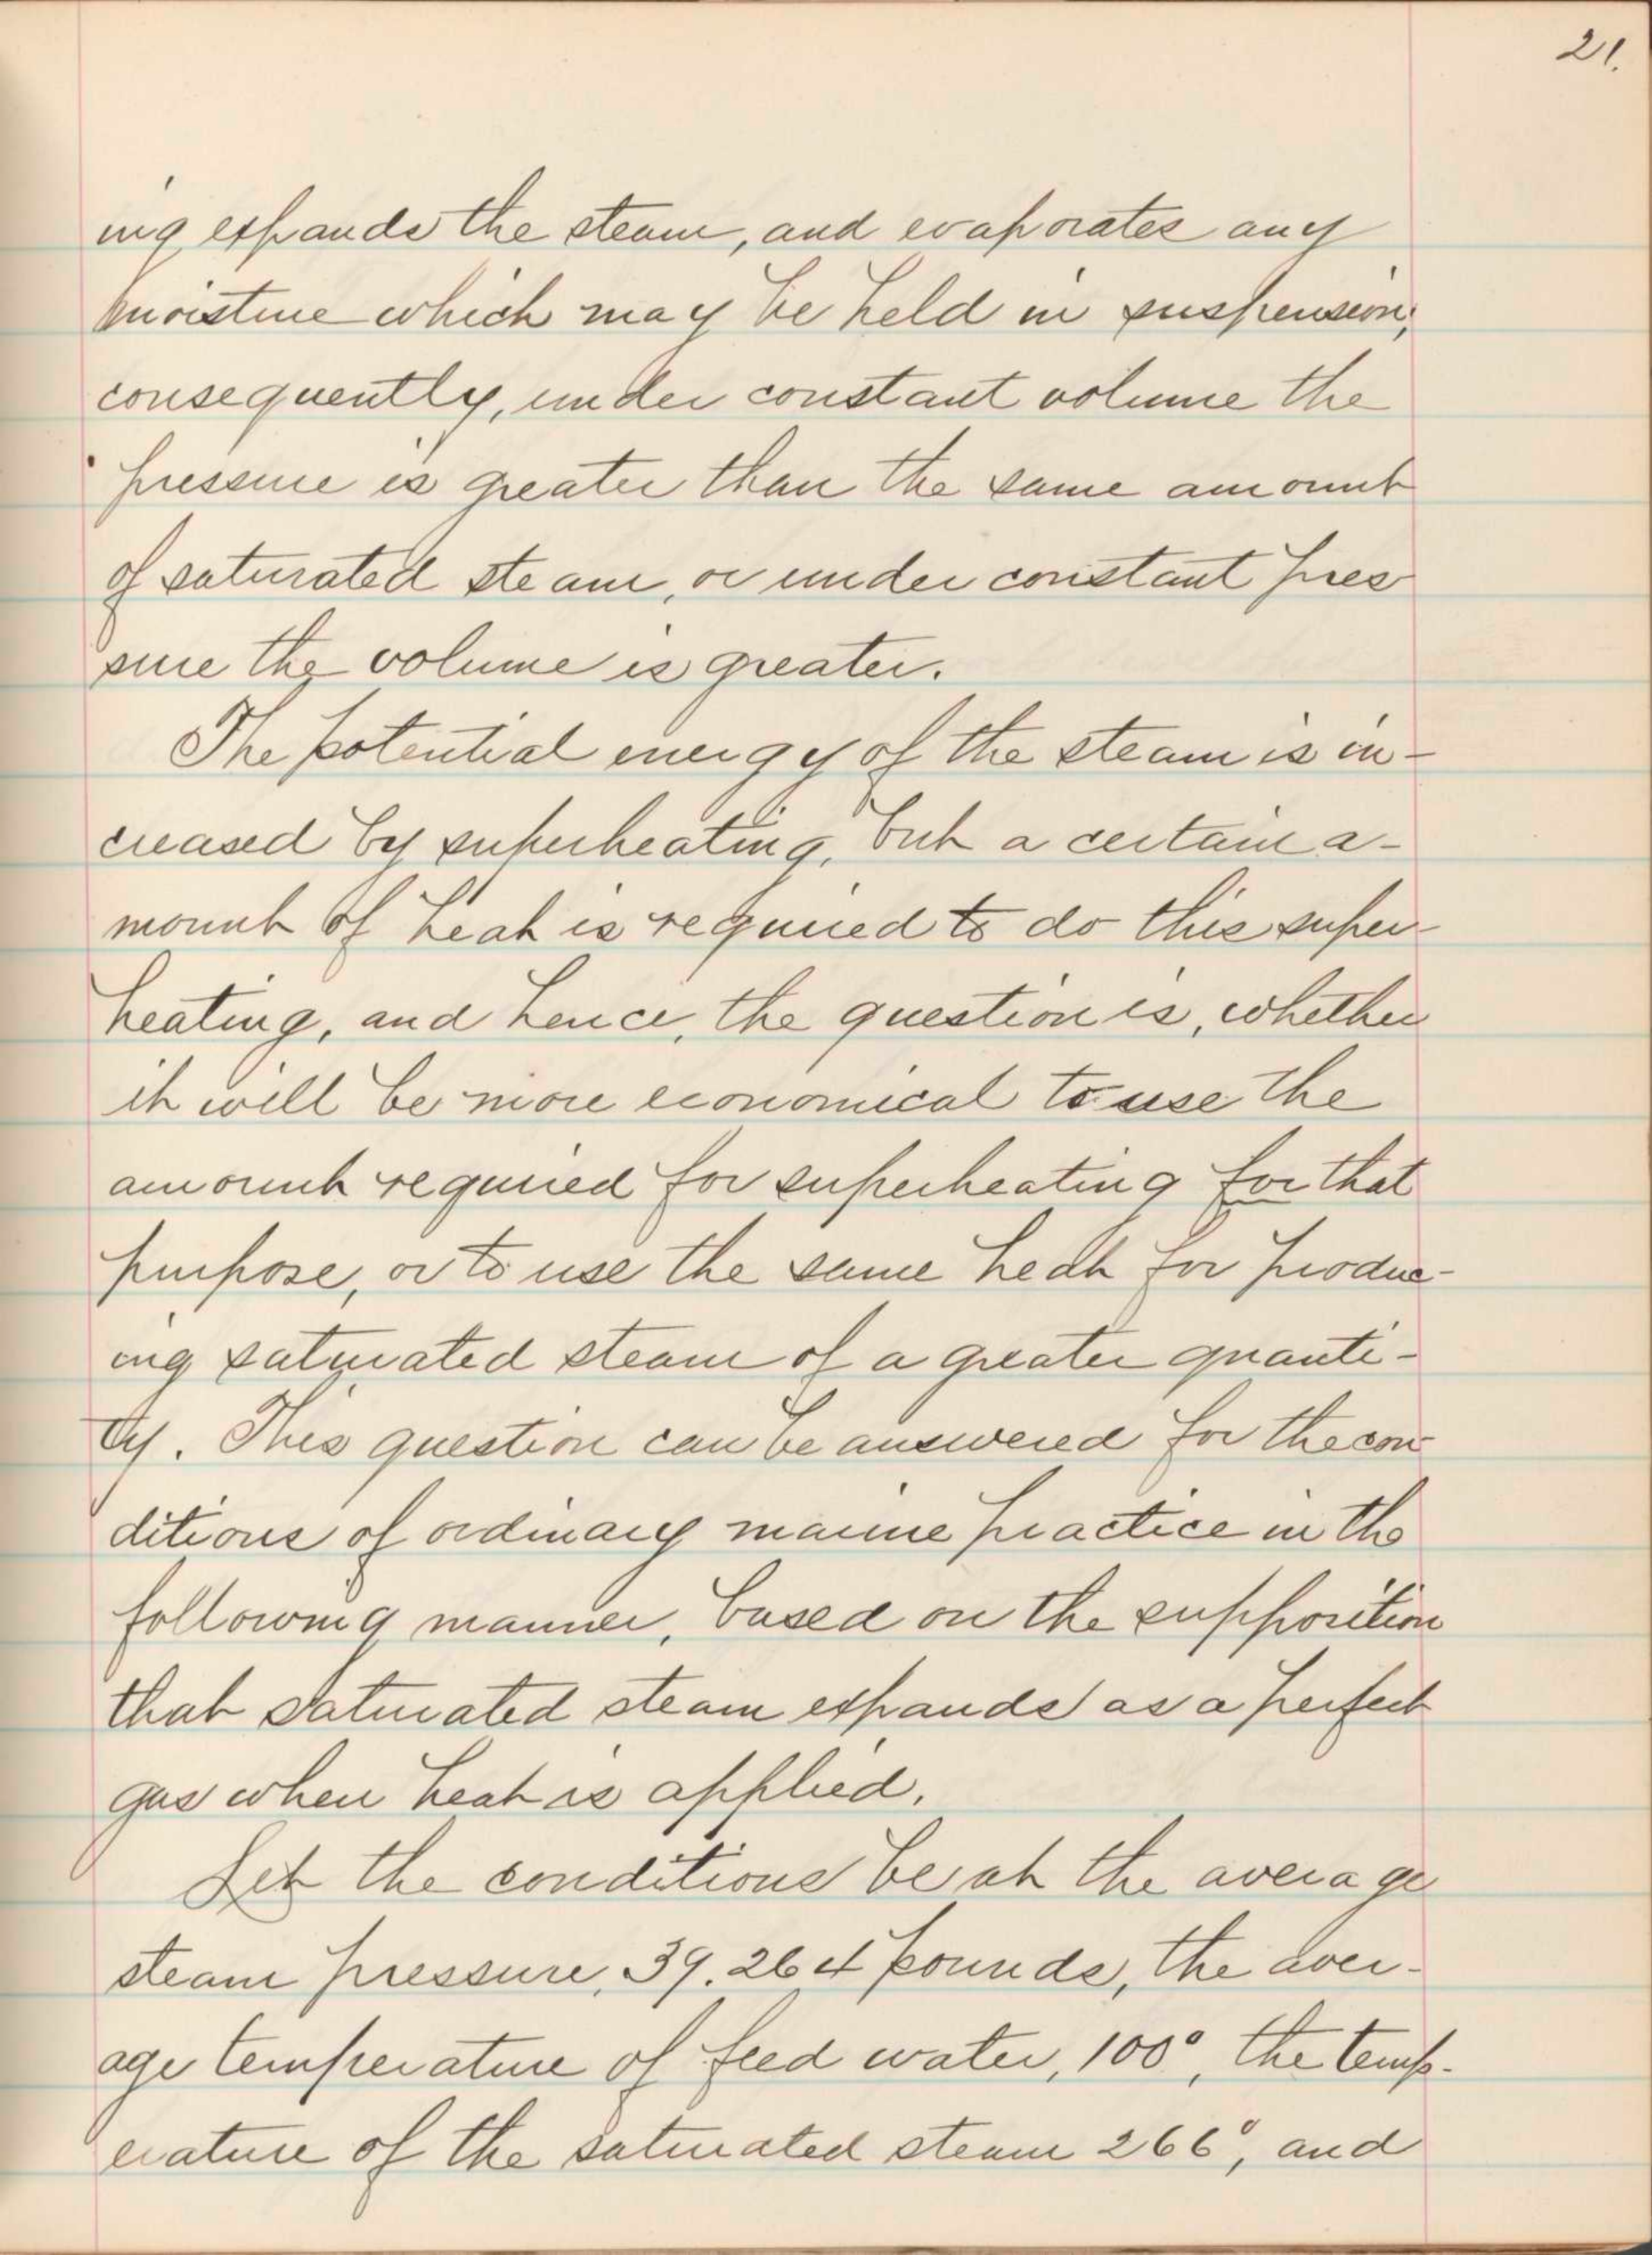 21.
ing expands the steam, and evaporates any
moisture which may be held in suspension;
consequently, under constant volume the
pressure is greater than the same amount
of saturated steam, or under constant pres
sure the volume is greater.
The potential energy of the steam is in-
creased by superheating, but a certain a-
mount of heat is required to do this super-
heating, and hence, the question is, whether
it will be more economical to use the
amount required for superheating for that
purpose, or to use the same heat for produc-
ing saturated steam of a greater quanti-
ty. This question can be answered for the con-
ditions of ordinary marine practice in the
following manner, based on the supposition
that saturated steam expands as a perfect
gas when heat is applied.
Let the conditions be at the average
steam pressure, 39.264 pounds, the aver-
age temperature of feed water, 100°, the temp-
erature of the saturated steam 266°, and